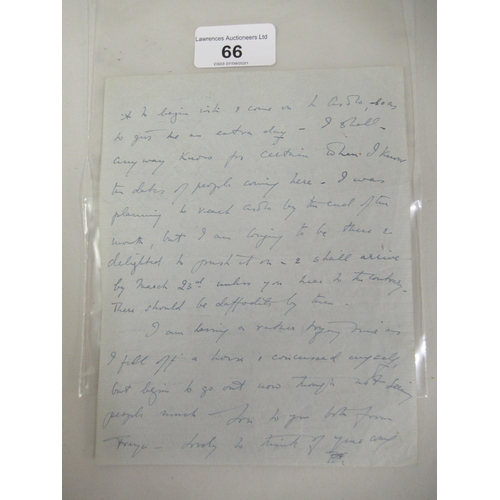 Lawrences Auctioneers Ltd
66
to begin with & come on to so as
to give me an extra day – I shall
anyway know for certain when I know
the dates of people coming here – I was
planning to reach by the end of the
month, but I am longing to be there &
delighted to push it on – & shall arrive
by March 23rd unless you hear to the contrary.
There should be daffodils by then –
I am having a rather trying time as
I fell off a horse & concussed myself,
but begin to go out now though not seeing
people much Love to you both from
Freya – lovely to think of your